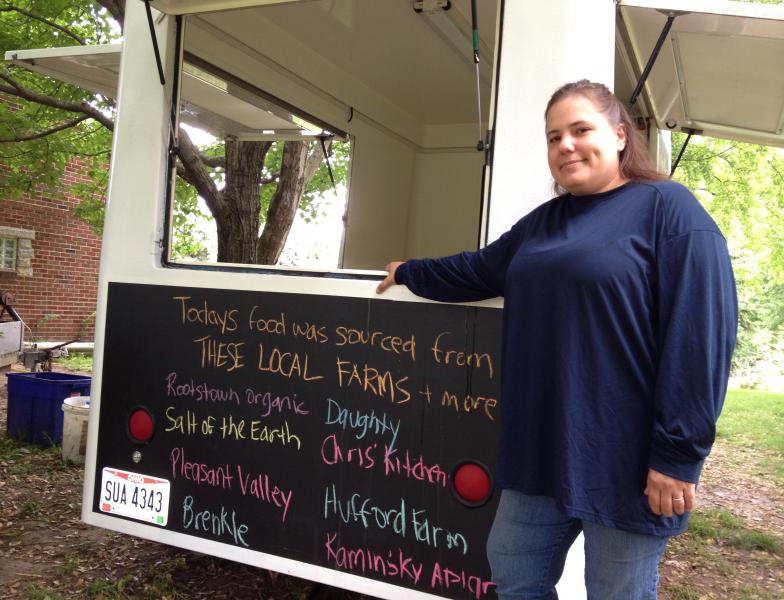 Todays food was sourced from
THESE LOCAL FARMS + more
Rootstown organic
Salt of the Earth
Pleasant Valley
Brenkle
Daughty
Chris' Kitchen
Hufford Farm
Kaminsky Apiar
OHIO
SUA 4343